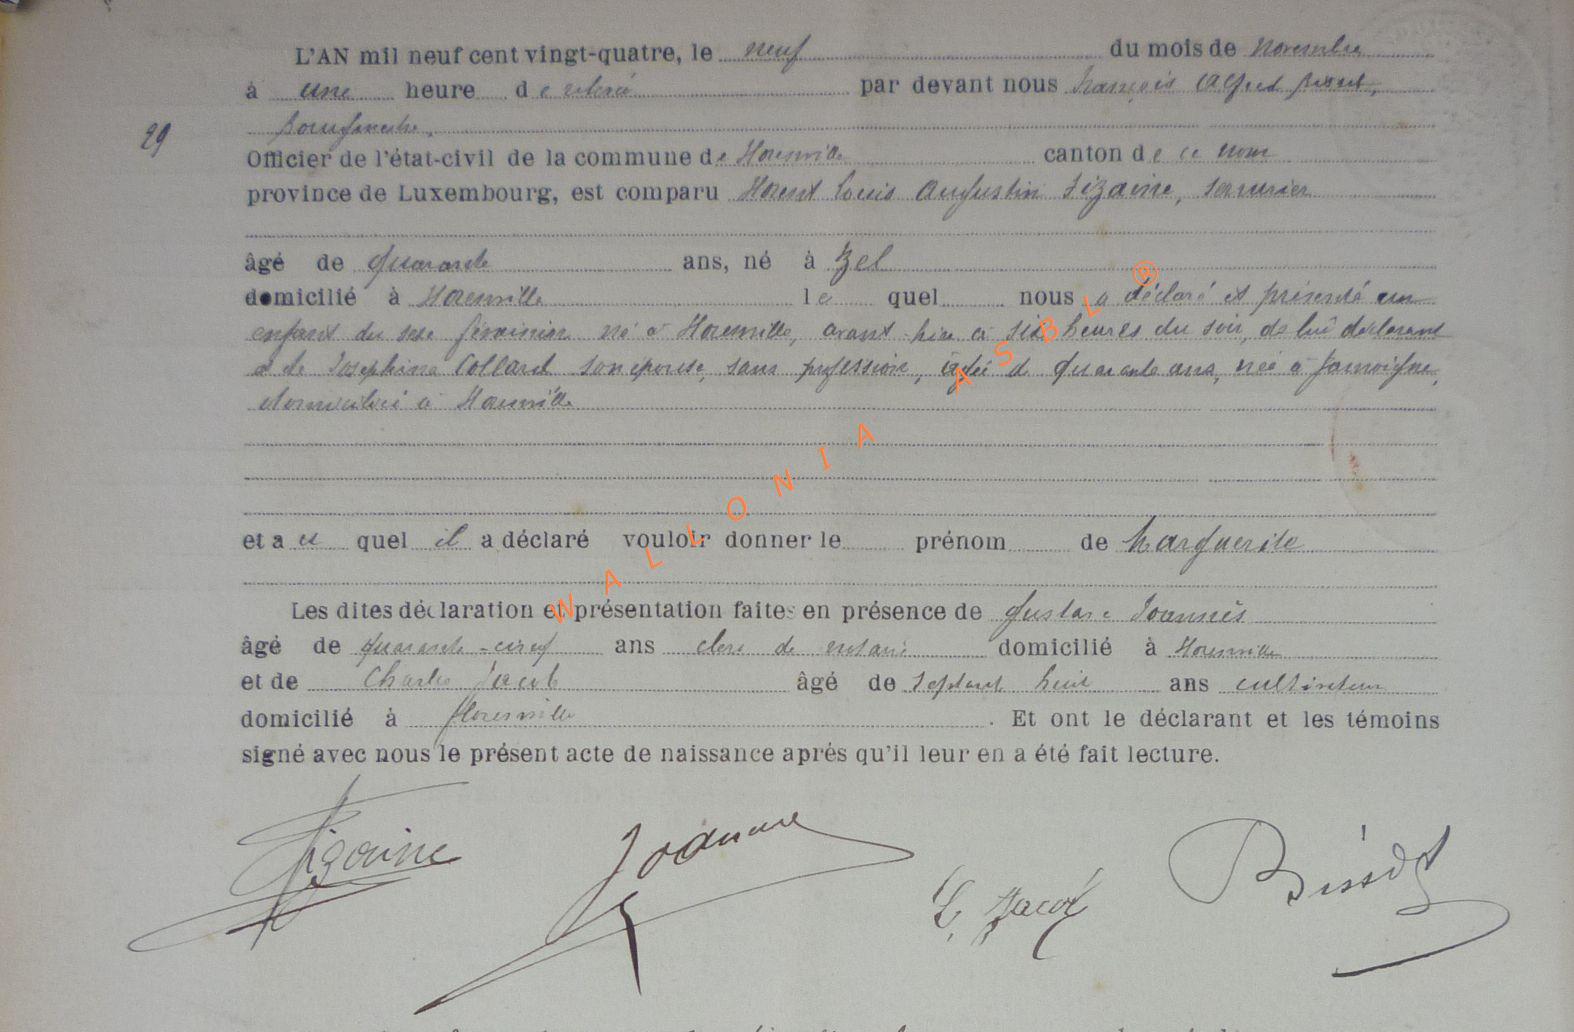 L'AN mil neuf cent vingt-quatre, le neuf du mois de Novembre
à une heure de relevée par devant nous François Alfred
29
bourgmestre,
Officier de l'état-civil de la commune de Florenville canton de ce nom
province de Luxembourg, est comparu Florent Louis Augustin Lizaine, serrurier
âgé de quarante ans, né à Izel
domicilié à Florenville lequel nous a déclaré et présenté un
enfant du sexe féminin né à Florenville, avant-hier à six heures du soir, de lui déclarant
et de Joséphine Collard son épouse, sans profession, âgée de quarante ans, née à Jamoigne,
domiciliée à Florenville
et a el quel il a déclaré vouloir donner le prénom de Marguerite
Les dites déclaration et présentation faites en présence de Gustave Joannès
âgé de quarante-cinq ans clerc de notaire domicilié à Florenville
et de Charles Jacob âgé de septant huit ans cultivateur
domicilié à Florenville. Et ont le déclarant et les témoins
signé avec nous le présent acte de naissance aprés qu'il leur en a été fait lecture.
Lizaine Joannes C. Jacob
WALLONIA ASBL ®